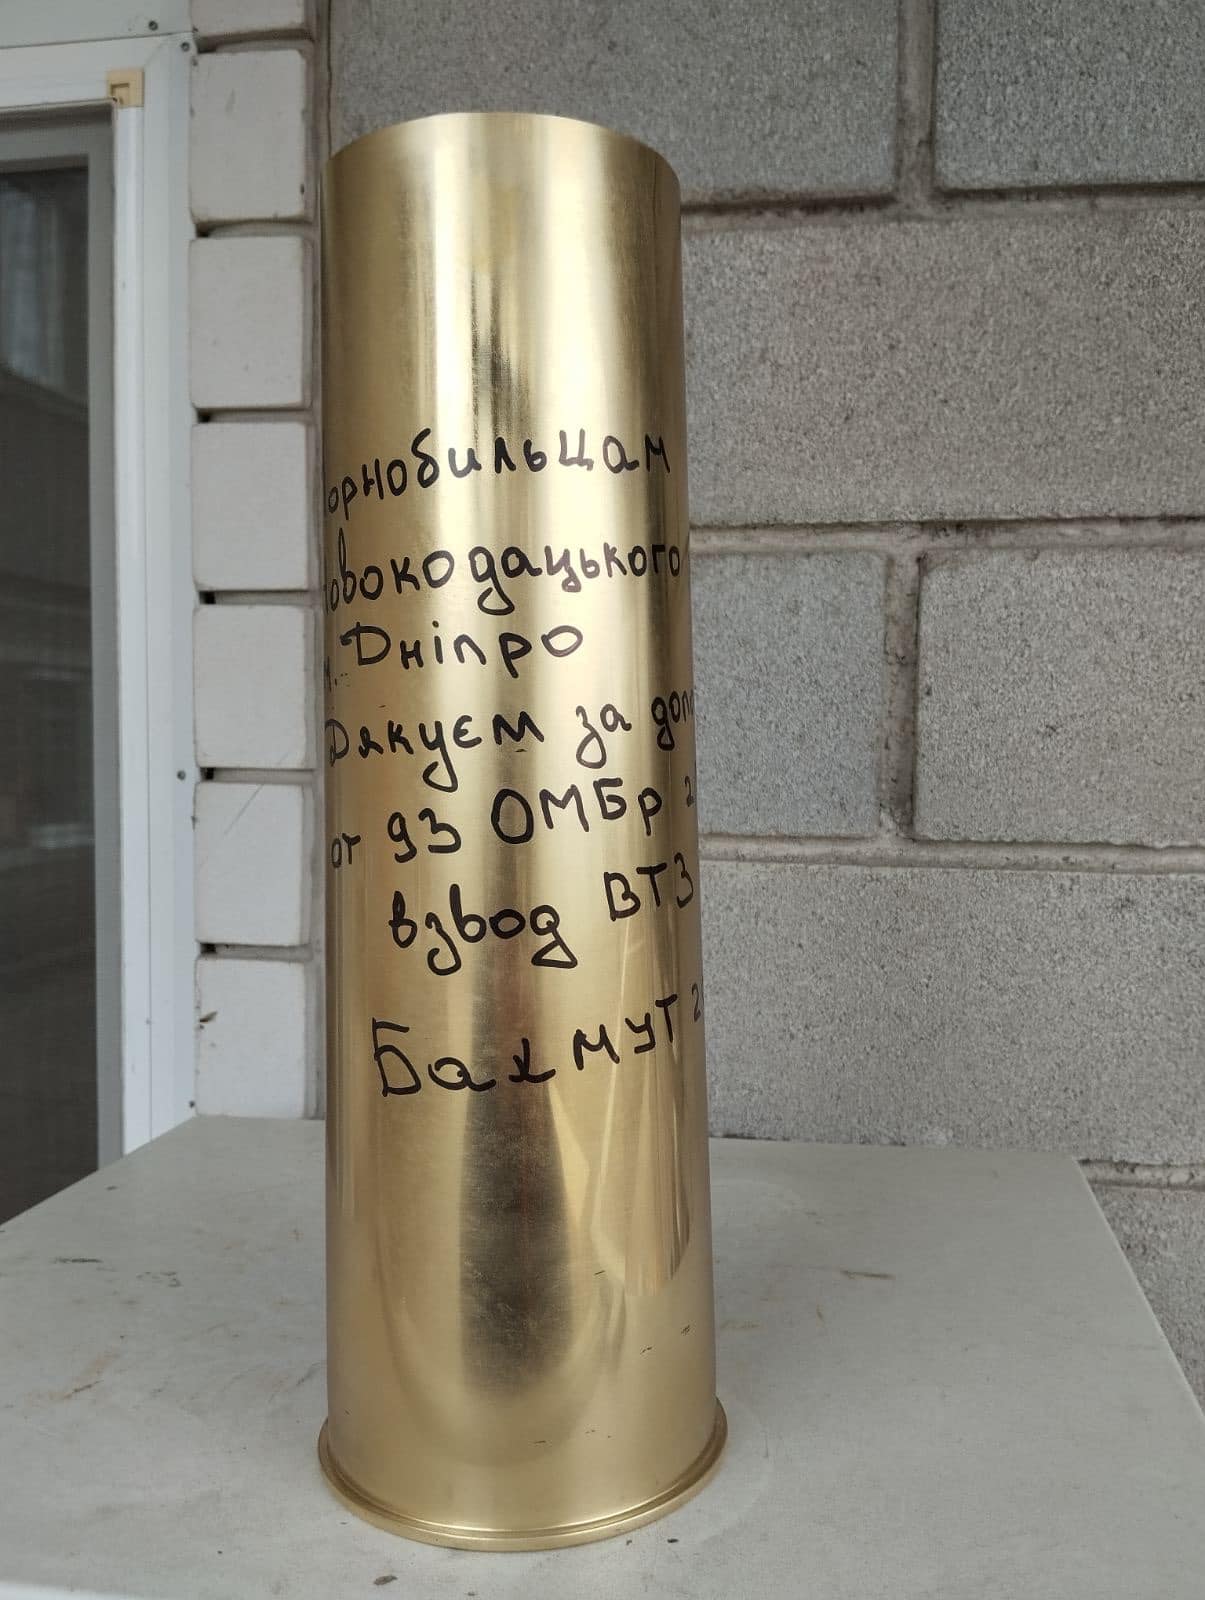 орнобильцам
овокодацького
м. Дніпро
Дякуєм за
от 93 ОМБр 2
взвод ВТЗ
Бахмут 2